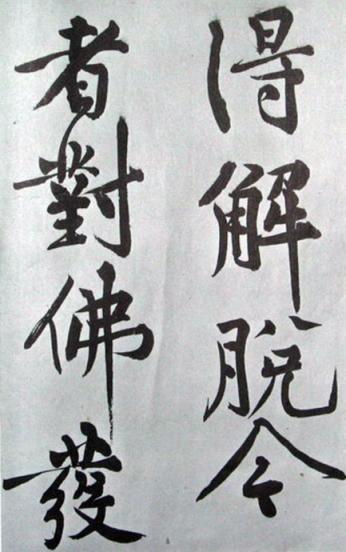 得解脫令
者對佛發